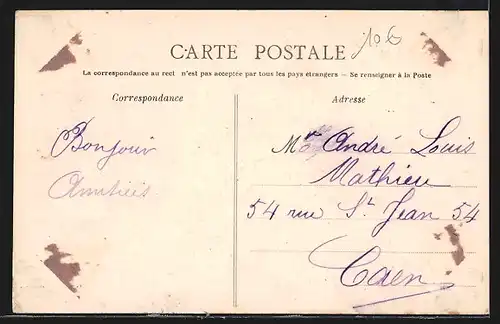 106
CARTE POSTALE
La correspondance au rect n'est pas acceptée par tous les pays étrangers — Se renseigner à la Poste
Correspondance
Adresse
Bonjour
Amitiés
Mr André Louis
Mathieu
54 rue St Jean 54
Caen